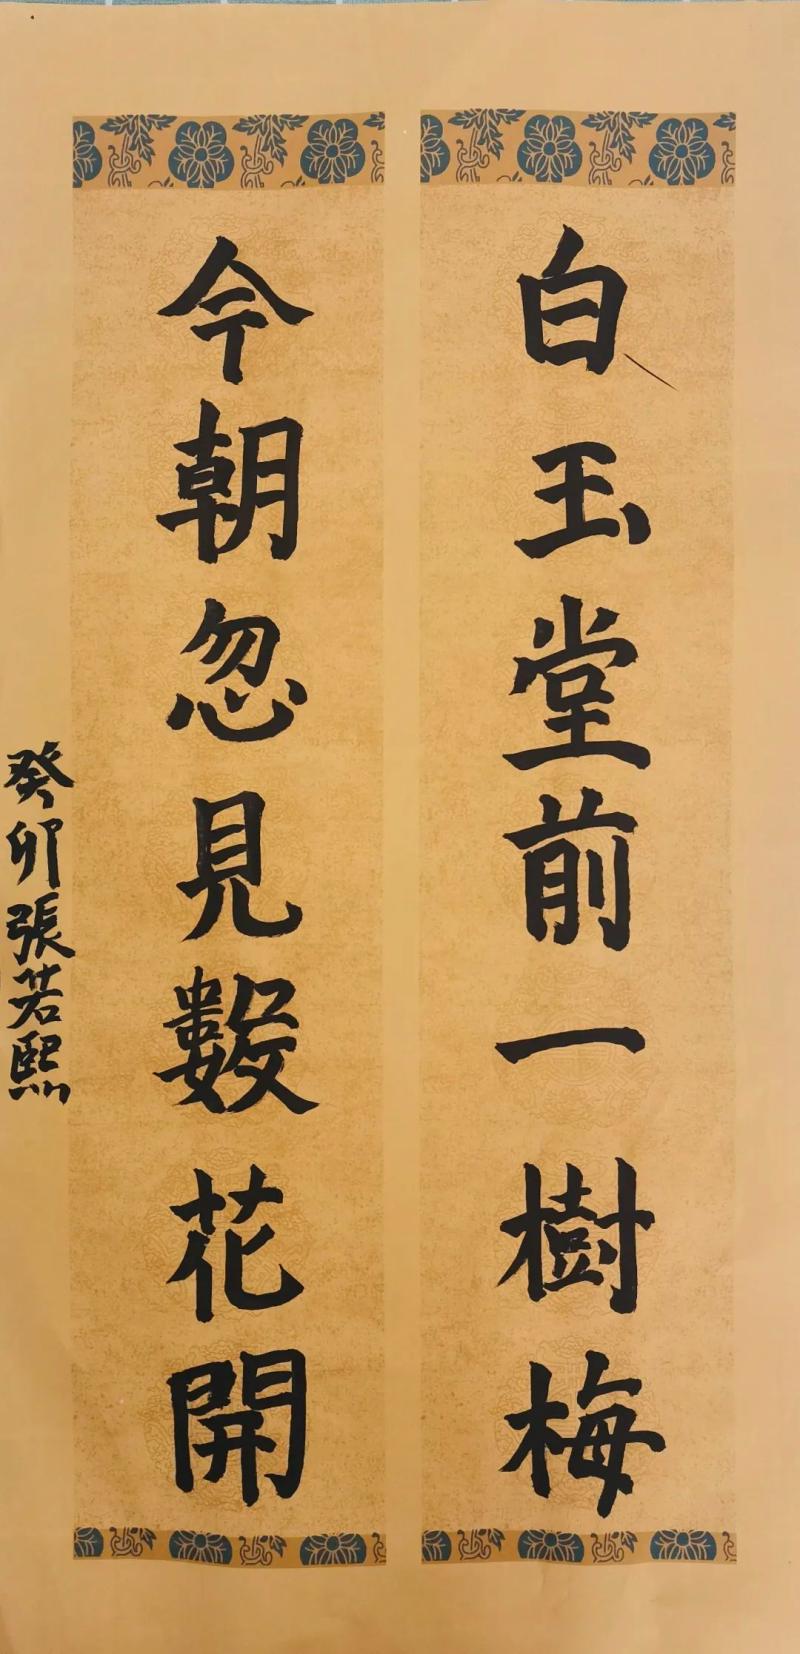 白玉堂前一樹梅
今朝忽見數花開
癸卯張若熙